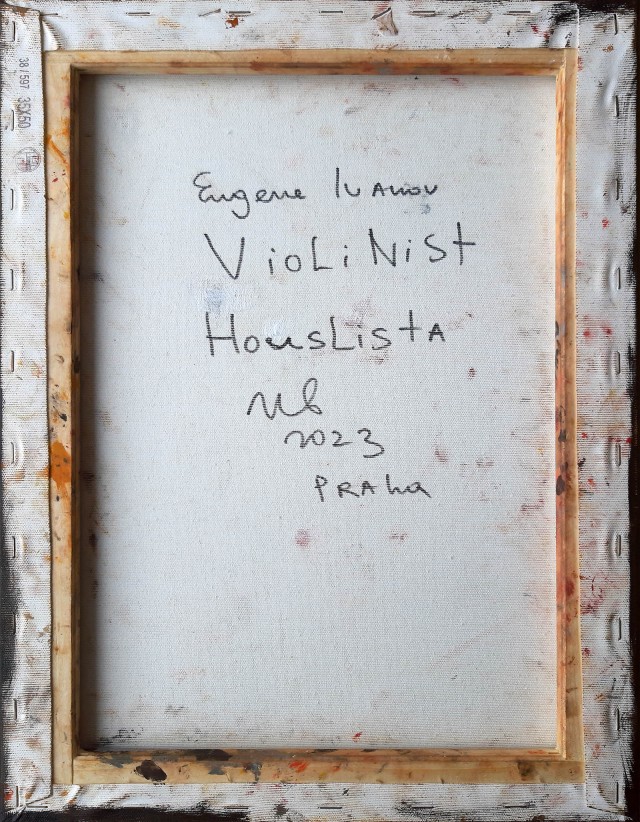 Eugene Ivanov
VioLiNiSt
HousListA
Ив
2023
PRAha
38/597 35X50